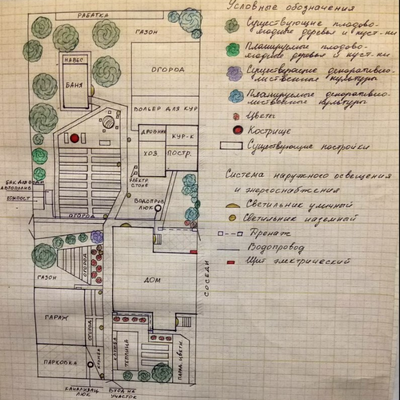 РАБАТКА
ГАЗОН
НАВЕС
БАНЯ
ОГОРОД
ВОЛЬЕР ДЛЯ КУР
ДРОВНИК
КУР-К
ХОЗ.
ПОСТР.
ЭЛЕКТР.
СТОЛБ
ВОДОПРОВ.
ЛЮК
КОМПОСТ
ОГОРОД
ГАЗОН
ДОМ
СОСЕДИ
ГАРАЖ
ПАРКОВКА
ТЕПЛИЦА
КАНАЛИЗАЦ.
ЛЮК
ВХОД НА
УЧАСТОК
Условные обозначения
Существующие плодово-
ягодные деревья и куст-ки
Планируемые плодово-
ягодные деревья и куст-ки
Существующие декоративно-
лиственные культуры
Планируемые декоративно-
лиственные культуры
Цветы
Кострище
Существующие постройки
Система наружного освещения
и энергоснабжения
Светильник уличный
Светильник наземный
Дренаж
Водопровод
Щит электрический